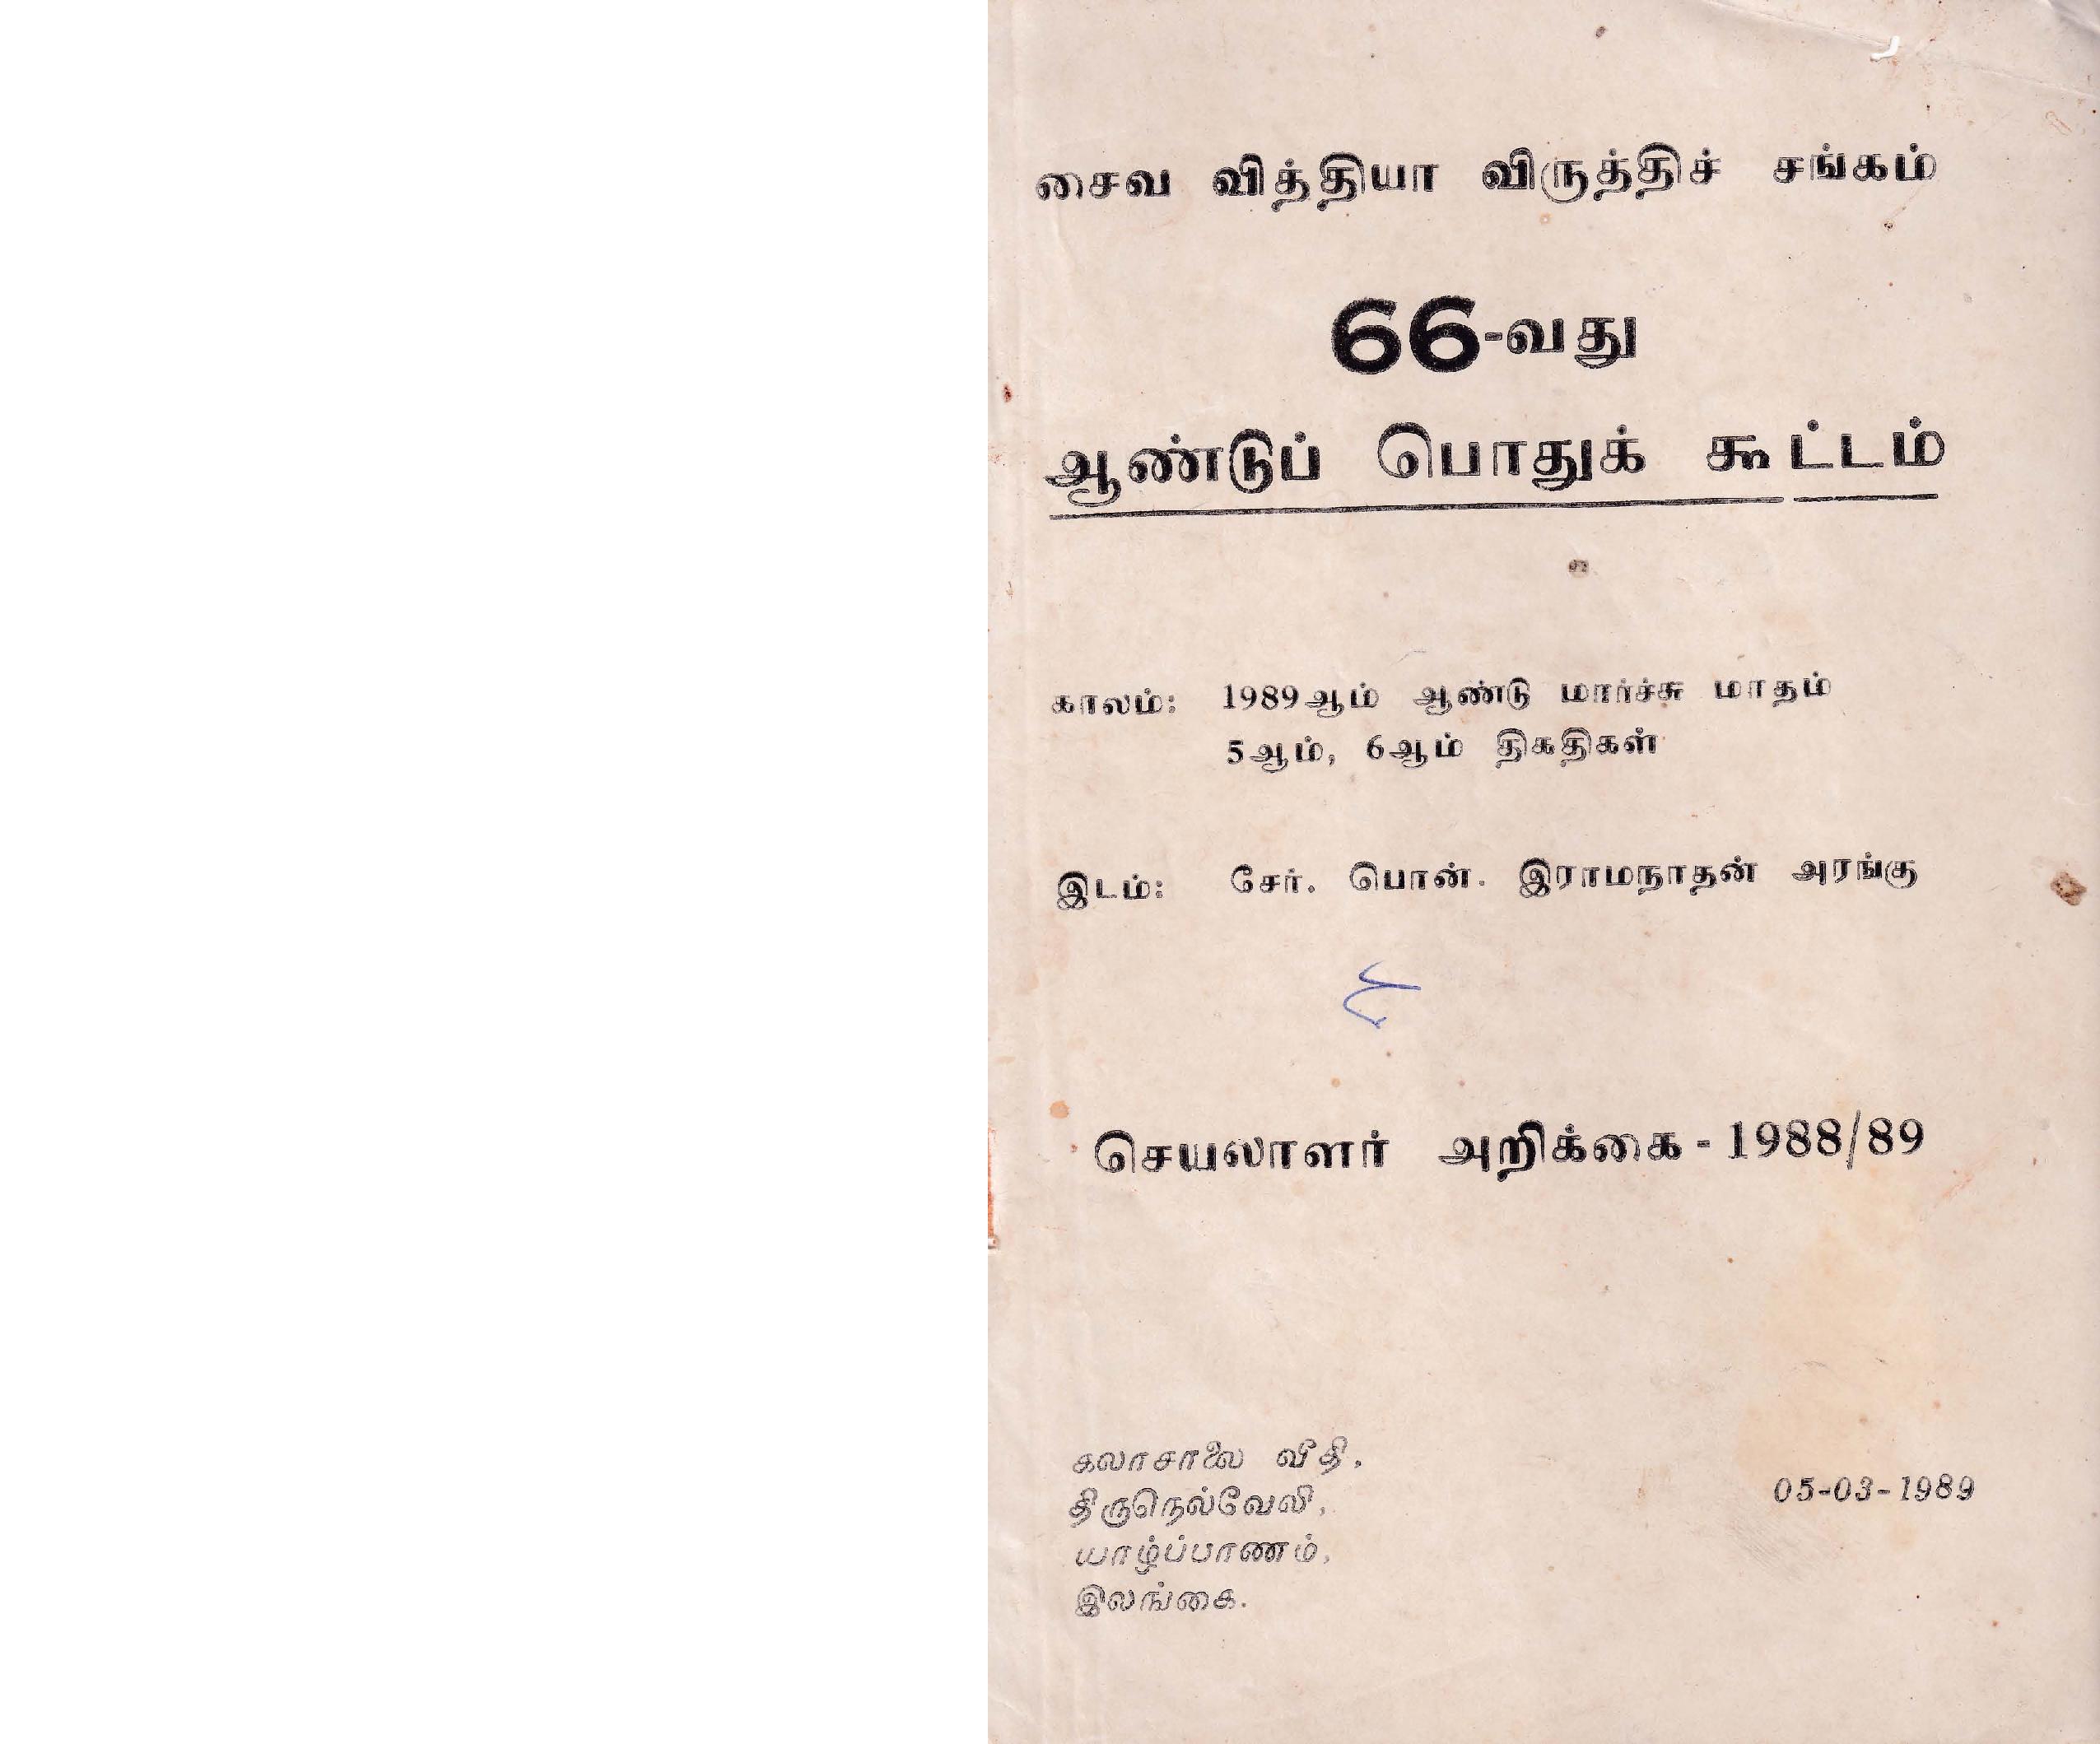 சைவ வித்தியா விருத்திச் சங்கம்
66-வது
ஆண்டுப் பொதுக் கூட்டம்
காலம்: 1989ஆம் ஆண்டு மார்ச்சு மாதம்
5ஆம், 6ஆம் திகதிகள்
இடம்: சேர். பொன். இராமநாதன் அரங்கு
செயலாளர் அறிக்கை - 1988/89
கலாசாலை வீதி,
திருநெல்வேலி,
யாழ்ப்பாணம்,
இலங்கை.
05-03-1989